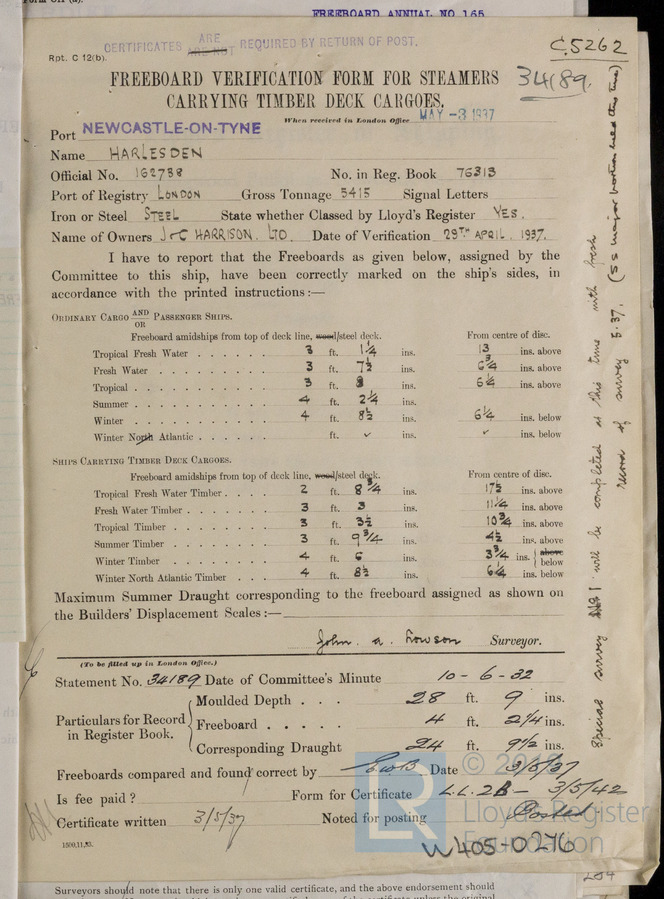 FREEBOARD ANNUAL NO 165
CERTIFICATES ARE ARE NOT REQUIRED BY RETURN OF POST.
C.5262
Rpt. C 12(b).
34189.
FREEBOARD VERIFICATION FORM FOR STEAMERS
CARRYING TIMBER DECK CARGOES.
When received in London Office MAY -3 1937
Port NEWCASTLE-ON-TYNE
Name HARLESDEN
Official No. 162738 No. in Reg. Book 76313
Port of Registry LONDON Gross Tonnage 5415 Signal Letters
Iron or Steel STEEL State whether Classed by Lloyd's Register YES.
Name of Owners J & C HARRISON. LTD. Date of Verification 29TH APRIL. 1937.
I have to report that the Freeboards as given below, assigned by the
Committee to this ship, have been correctly marked on the ship's sides, in
accordance with the printed instructions:—
ORDINARY CARGO AND OR PASSENGER SHIPS.
Freeboard amidships from top of deck line, wood/steel deck. From centre of disc.
Tropical Fresh Water 3 ft. 1 1/4 ins. 13 ins. above
Fresh Water 3 ft. 7 1/2 ins. 6 3/4 ins. above
Tropical 3 ft. 8 ins. 6 1/4 ins. above
Summer 4 ft. 2 1/4 ins.
Winter 4 ft. 8 1/2 ins. 6 1/4 ins. below
Winter North Atlantic ft. ✓ ins. ✓ ins. below
SHIPS CARRYING TIMBER DECK CARGOES.
Freeboard amidships from top of deck line, wood/steel deck. From centre of disc.
Tropical Fresh Water Timber 2 ft. 8 3/4 ins. 17 1/2 ins. above
Fresh Water Timber 3 ft. 3 ins. 11 1/4 ins. above
Tropical Timber 3 ft. 3 1/2 ins. 10 3/4 ins. above
Summer Timber 3 ft. 9 3/4 ins. 4 1/2 ins. above
Winter Timber 4 ft. 6 ins. 3 3/4 ins. above below
Winter North Atlantic Timber 4 ft. 8 1/2 ins. 6 1/4 ins. below
Maximum Summer Draught corresponding to the freeboard assigned as shown on
the Builders' Displacement Scales:—
John. A. Lowson Surveyor.
(To be filled up in London Office.)
Statement No. 34189 Date of Committee's Minute 10-6-32
Particulars for Record in Register Book.
Moulded Depth 28 ft. 9 ins.
Freeboard 4 ft. 2 1/4 ins.
Corresponding Draught 24 ft. 9 1/2 ins.
Freeboards compared and found correct by EWB Date 3/5/37
Is fee paid? Form for Certificate L.L.2B - 3/5/42
Certificate written 3/5/37 Noted for posting Posted
1500,11,33.
W405-0276
Special survey No 1 will be completed at this time with fresh
record of survey 5.37. (SS major portion held this time)
© Lloyd's Register
Foundation
LR
Surveyors should note that there is only one valid certificate, and the above endorsement should